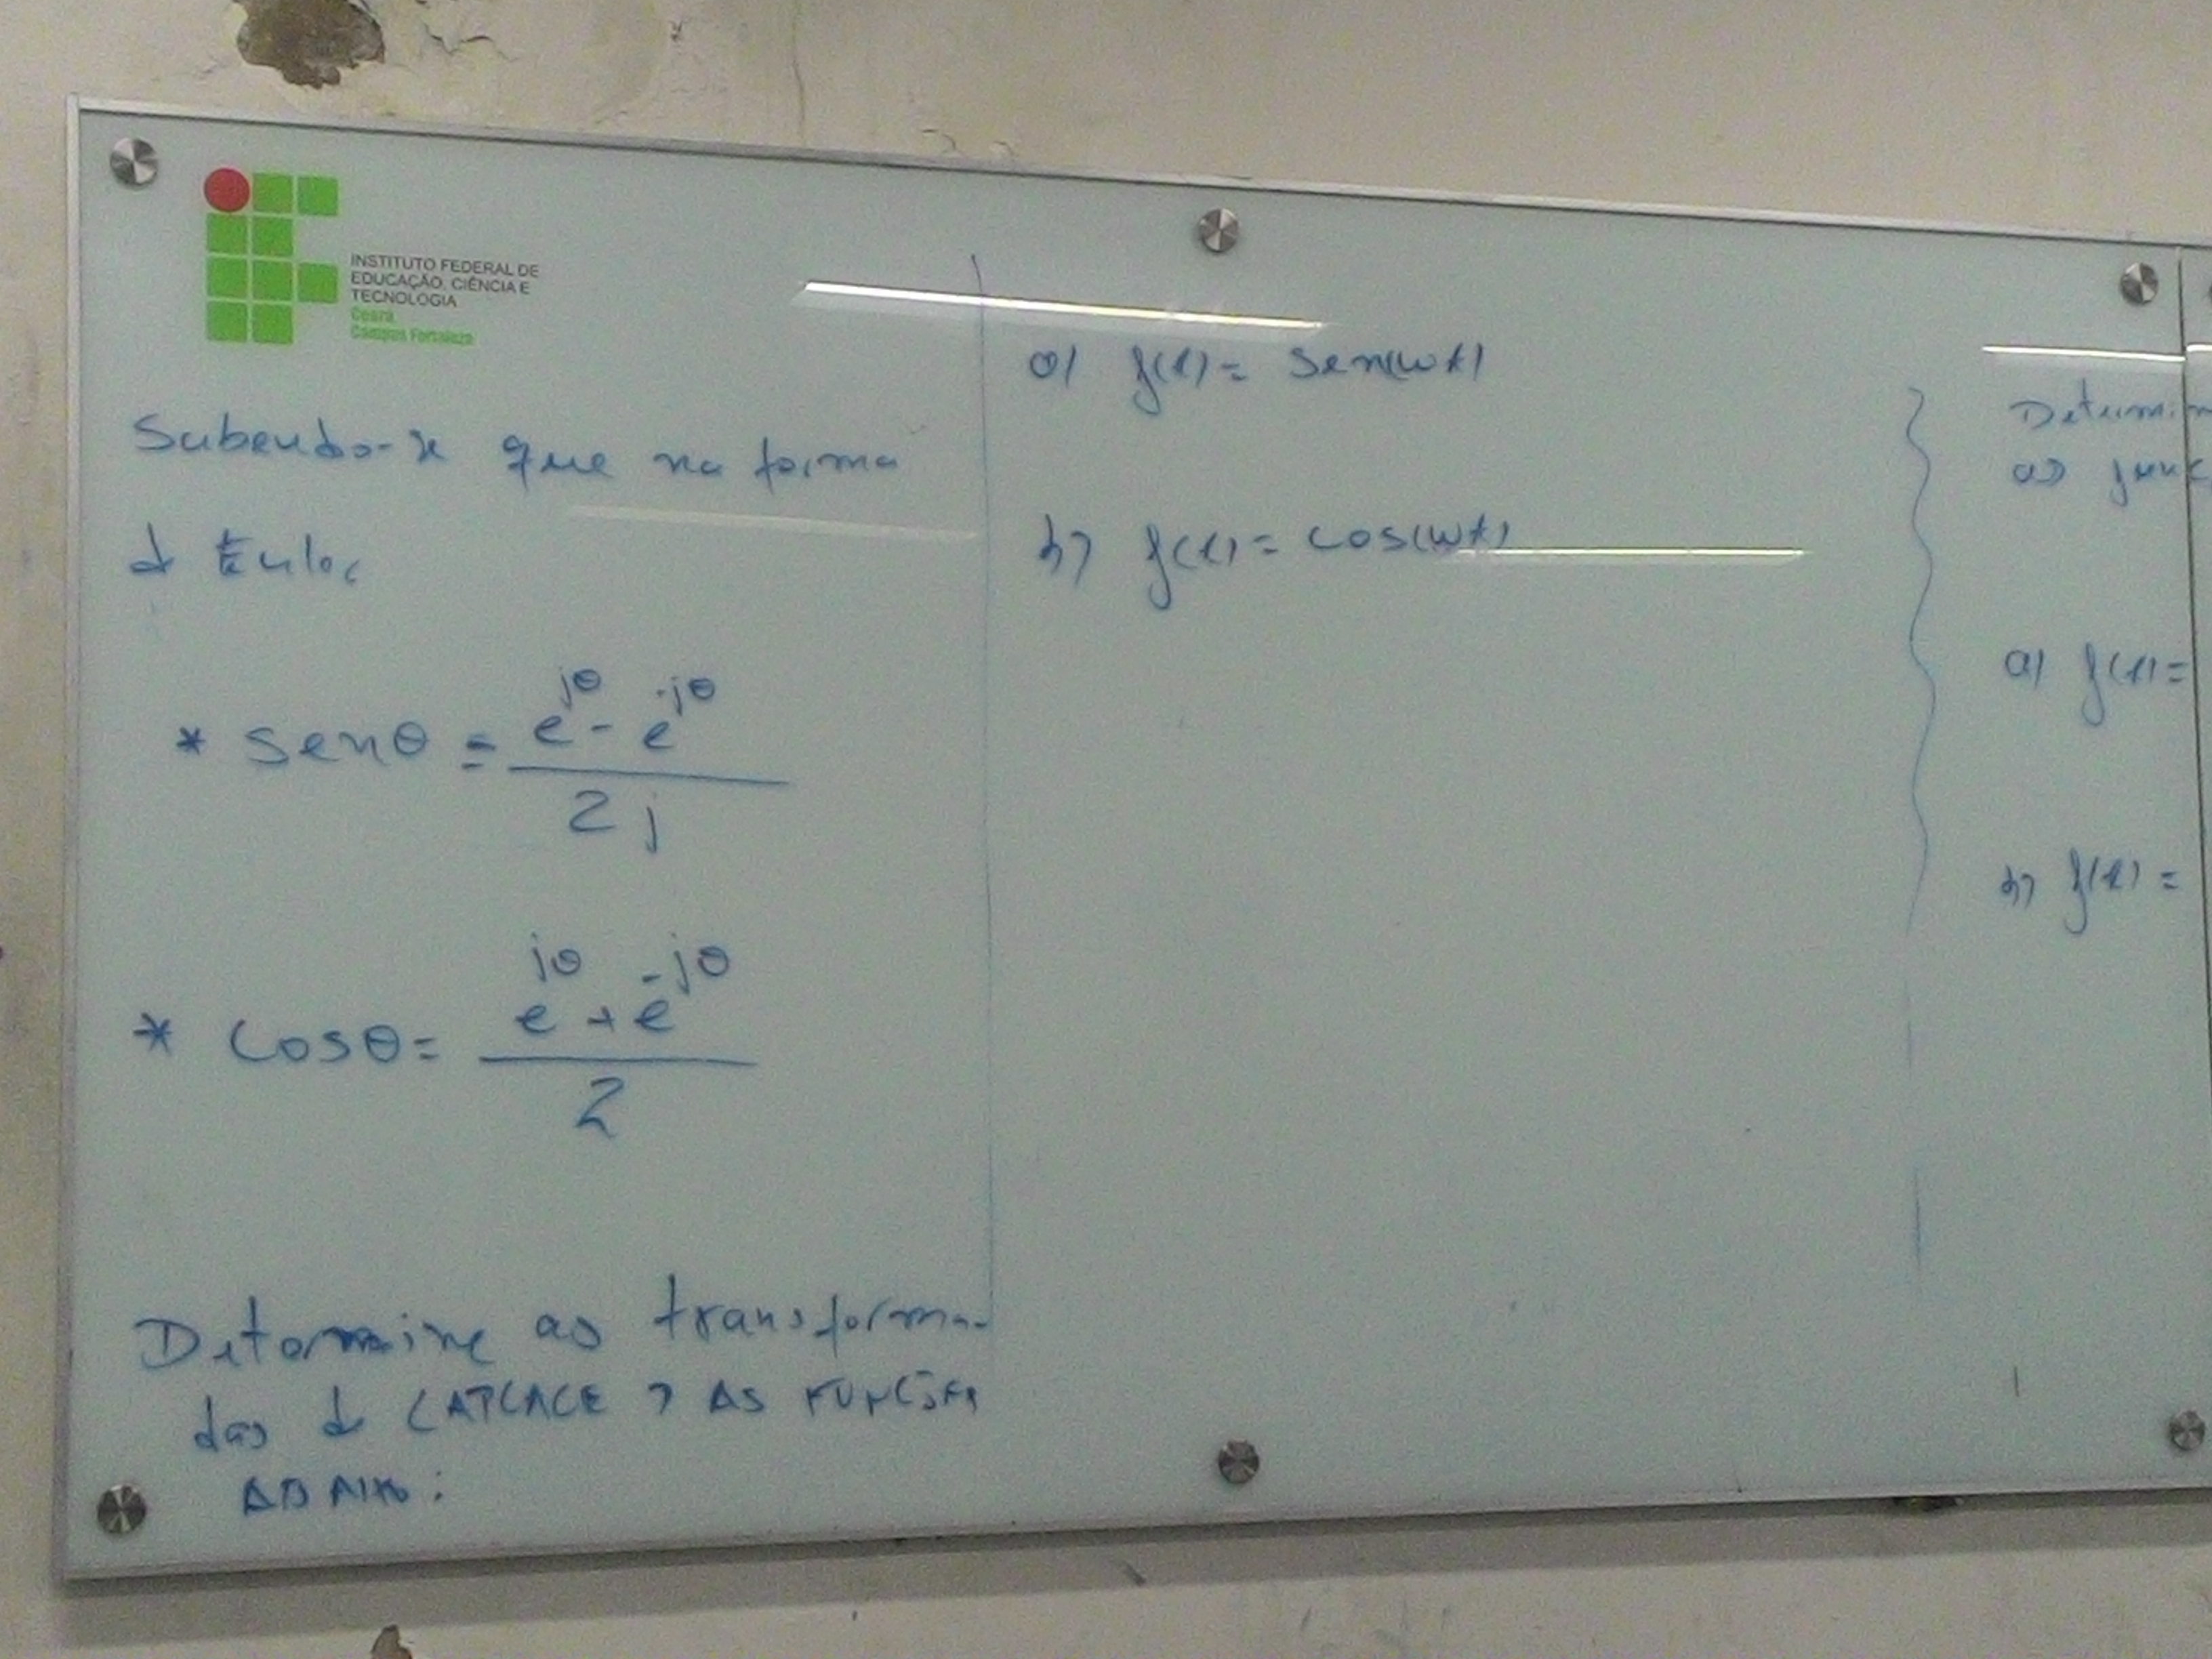 INSTITUTO FEDERAL DE
EDUCAÇÃO, CIÊNCIA E
TECNOLOGIA
Ceará
Campus Fortaleza
Sabendo-se que na forma
d Euler
* senθ = (e^jθ - e^-jθ) / 2j
* cosθ = (e^jθ + e^-jθ) / 2
Determine as transforma-
das d LAPLACE AS FUNÇÕES
ABAIXO:
a) f(t) = sen(wt)
b) f(t) = cos(wt)
Determin
as func
a) f(t) =
b) f(t) =